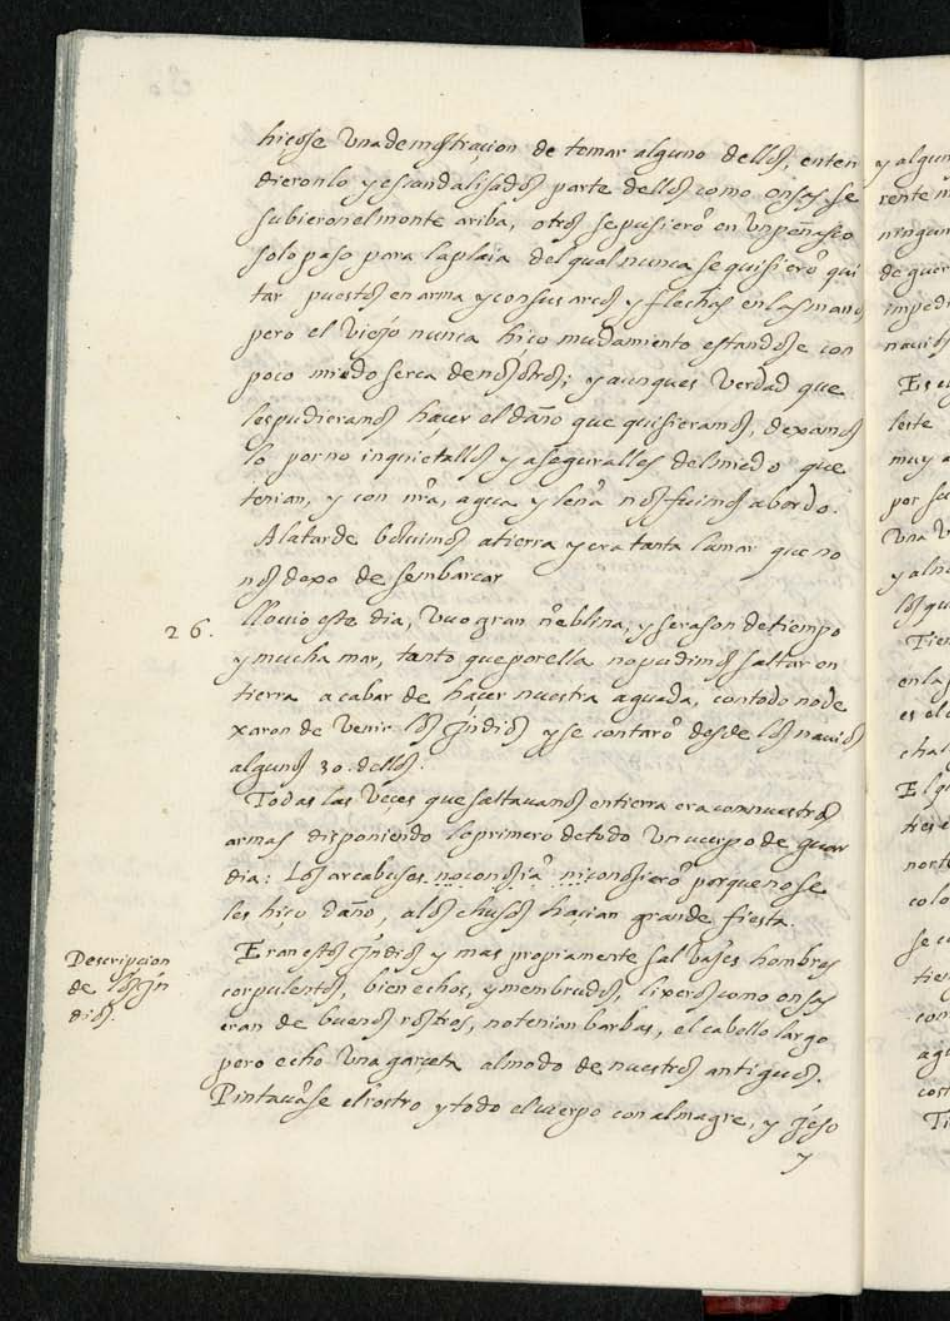 hiçose Vna demostraçion de tomar alguno dellos, enten
dieronlo y escandalisados parte dellos como onsas se
subieron el monte ariba, otros se pusierõ en Vn peñasco
solo paso para la plaia del qual nunca se quisierõ qui
tar puestos en arma y con sus arcos y flechas en las manos
pero el Viejo nunca hiço mudamiento estandose con
poco miedo serca de nosotros; y aunques Verdad que
les pudieramos haçer el daño que quisieramos, dexamos
lo por no inquietallos y aseguralles del miedo que
tenian, y con nrã, agua y leña nos fuimos abordo.
A la tarde boluimos a tierra y era tanta la mar que no
nos dexo de sembarcar
26. llouio este dia, Vuo gran nẽblina, y serason de tiempo
y mucha mar, tanto que por ella no pudimos saltar en
tierra acabar de haçer nuestra aguada, con todo no de
xaron de Venir los Jndios y se contarõ desde los nauios
algunos 30. dellos.
Todas las Veçes que saltauamos en tierra era con nuestras
armas disponiendo lo primero de todo Vn cuerpo de guar
dia: Los arcabuses no conosiã ni conosierõ porque no se
les hiço daño, a los chusos haçian grande fiesta.
Descripcion
de los Jn
dios.
Eran estos Jndios y mas propiamente saluajes hombres
corpulentos, bien echos, y membrudos, lixeros como onsas
eran de buenos rostros, no tenian barbas, el cabello largo
pero echo Vna garçeta al modo de nuestros antiguos.
Pintauãse el rostro y todo el cuerpo con almagre, y jeso
y
y algun
rente
ningun
de guer
impedi
nauios
Es
leste
muy a
por
Vna
y
los qu
Tien
en las
es el
chal
El
tes
norte
colo
se
tien
con
agu
cos
Ti